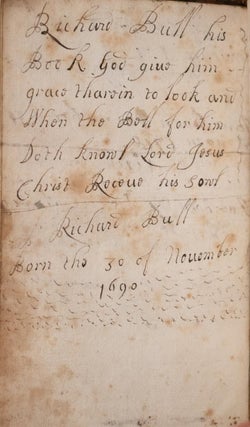 Richard Bull his
Book God give him
grace tharein to look and
When the Bell for him
Doth knowl Lord Jesus
Christ Receve his Sowl
Richard Bull
Born the 30 of November
1690